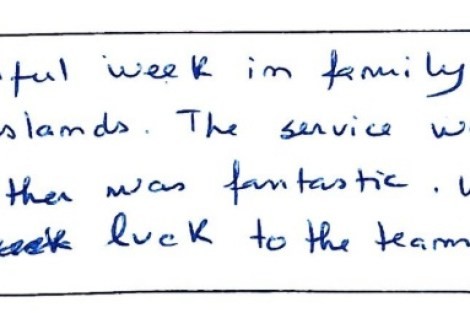 ful week in family
slands. The service w
ther was fantastic.
luck to the team